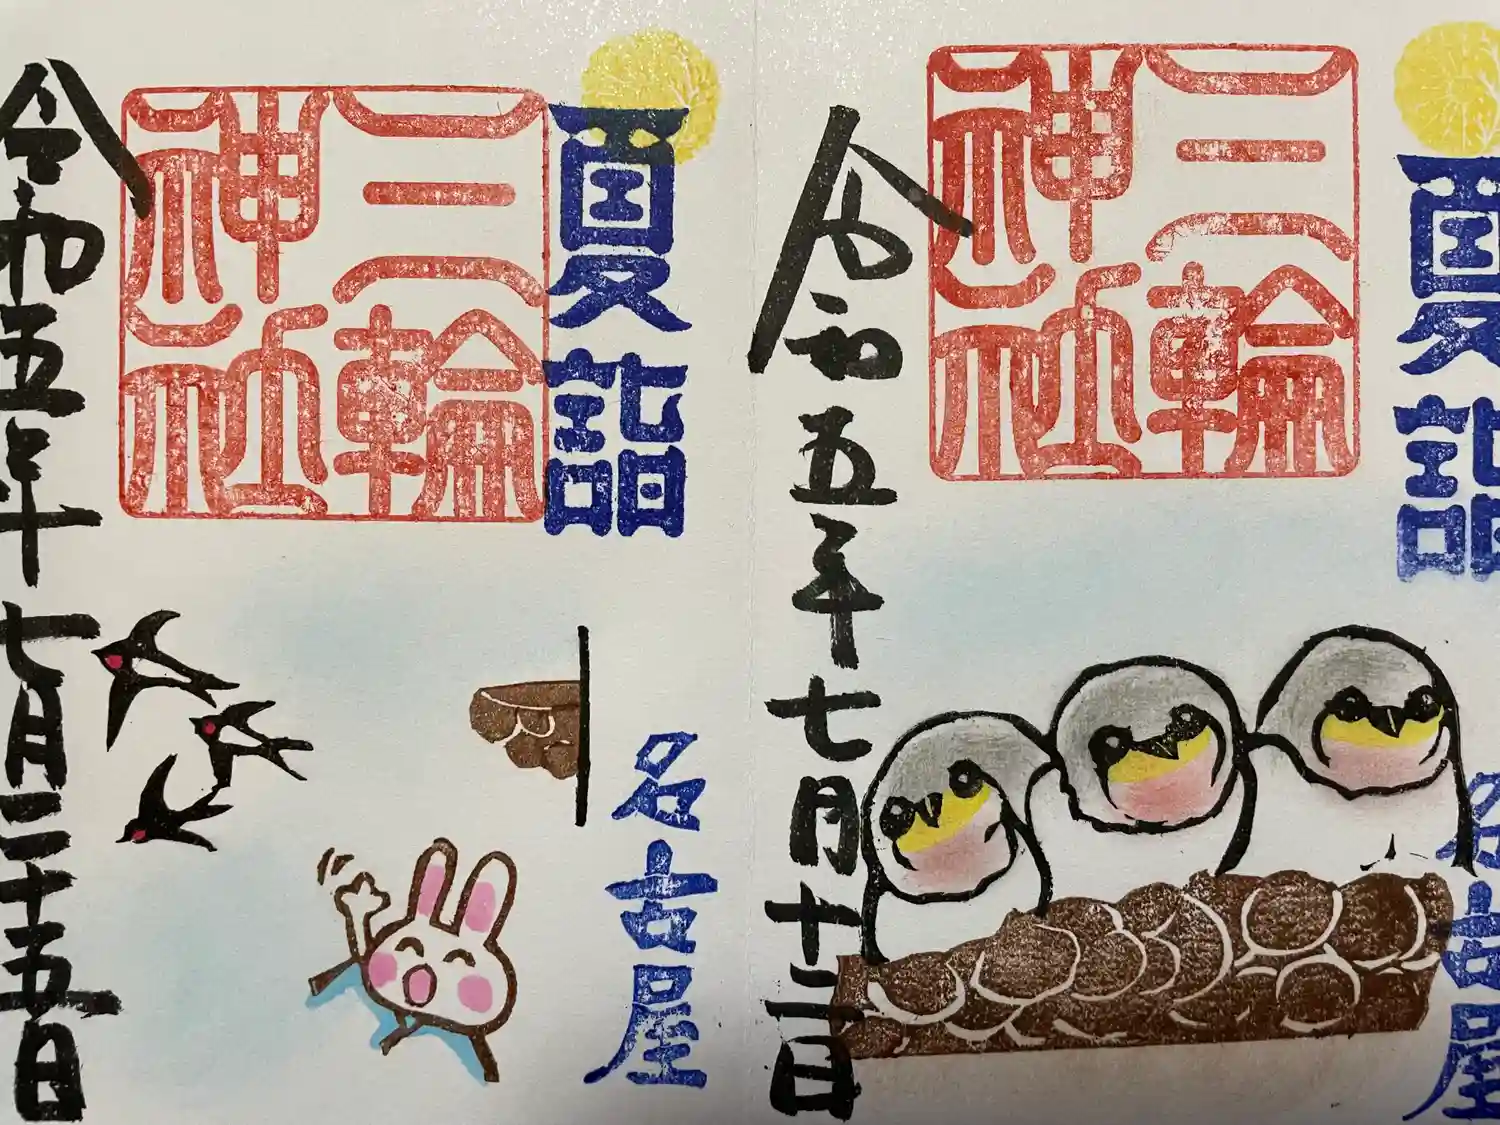 夏詣
三輪
神社
名古屋
令和五年七月十二日
夏詣
三輪
神社
名古屋
令和五年七月二十五日